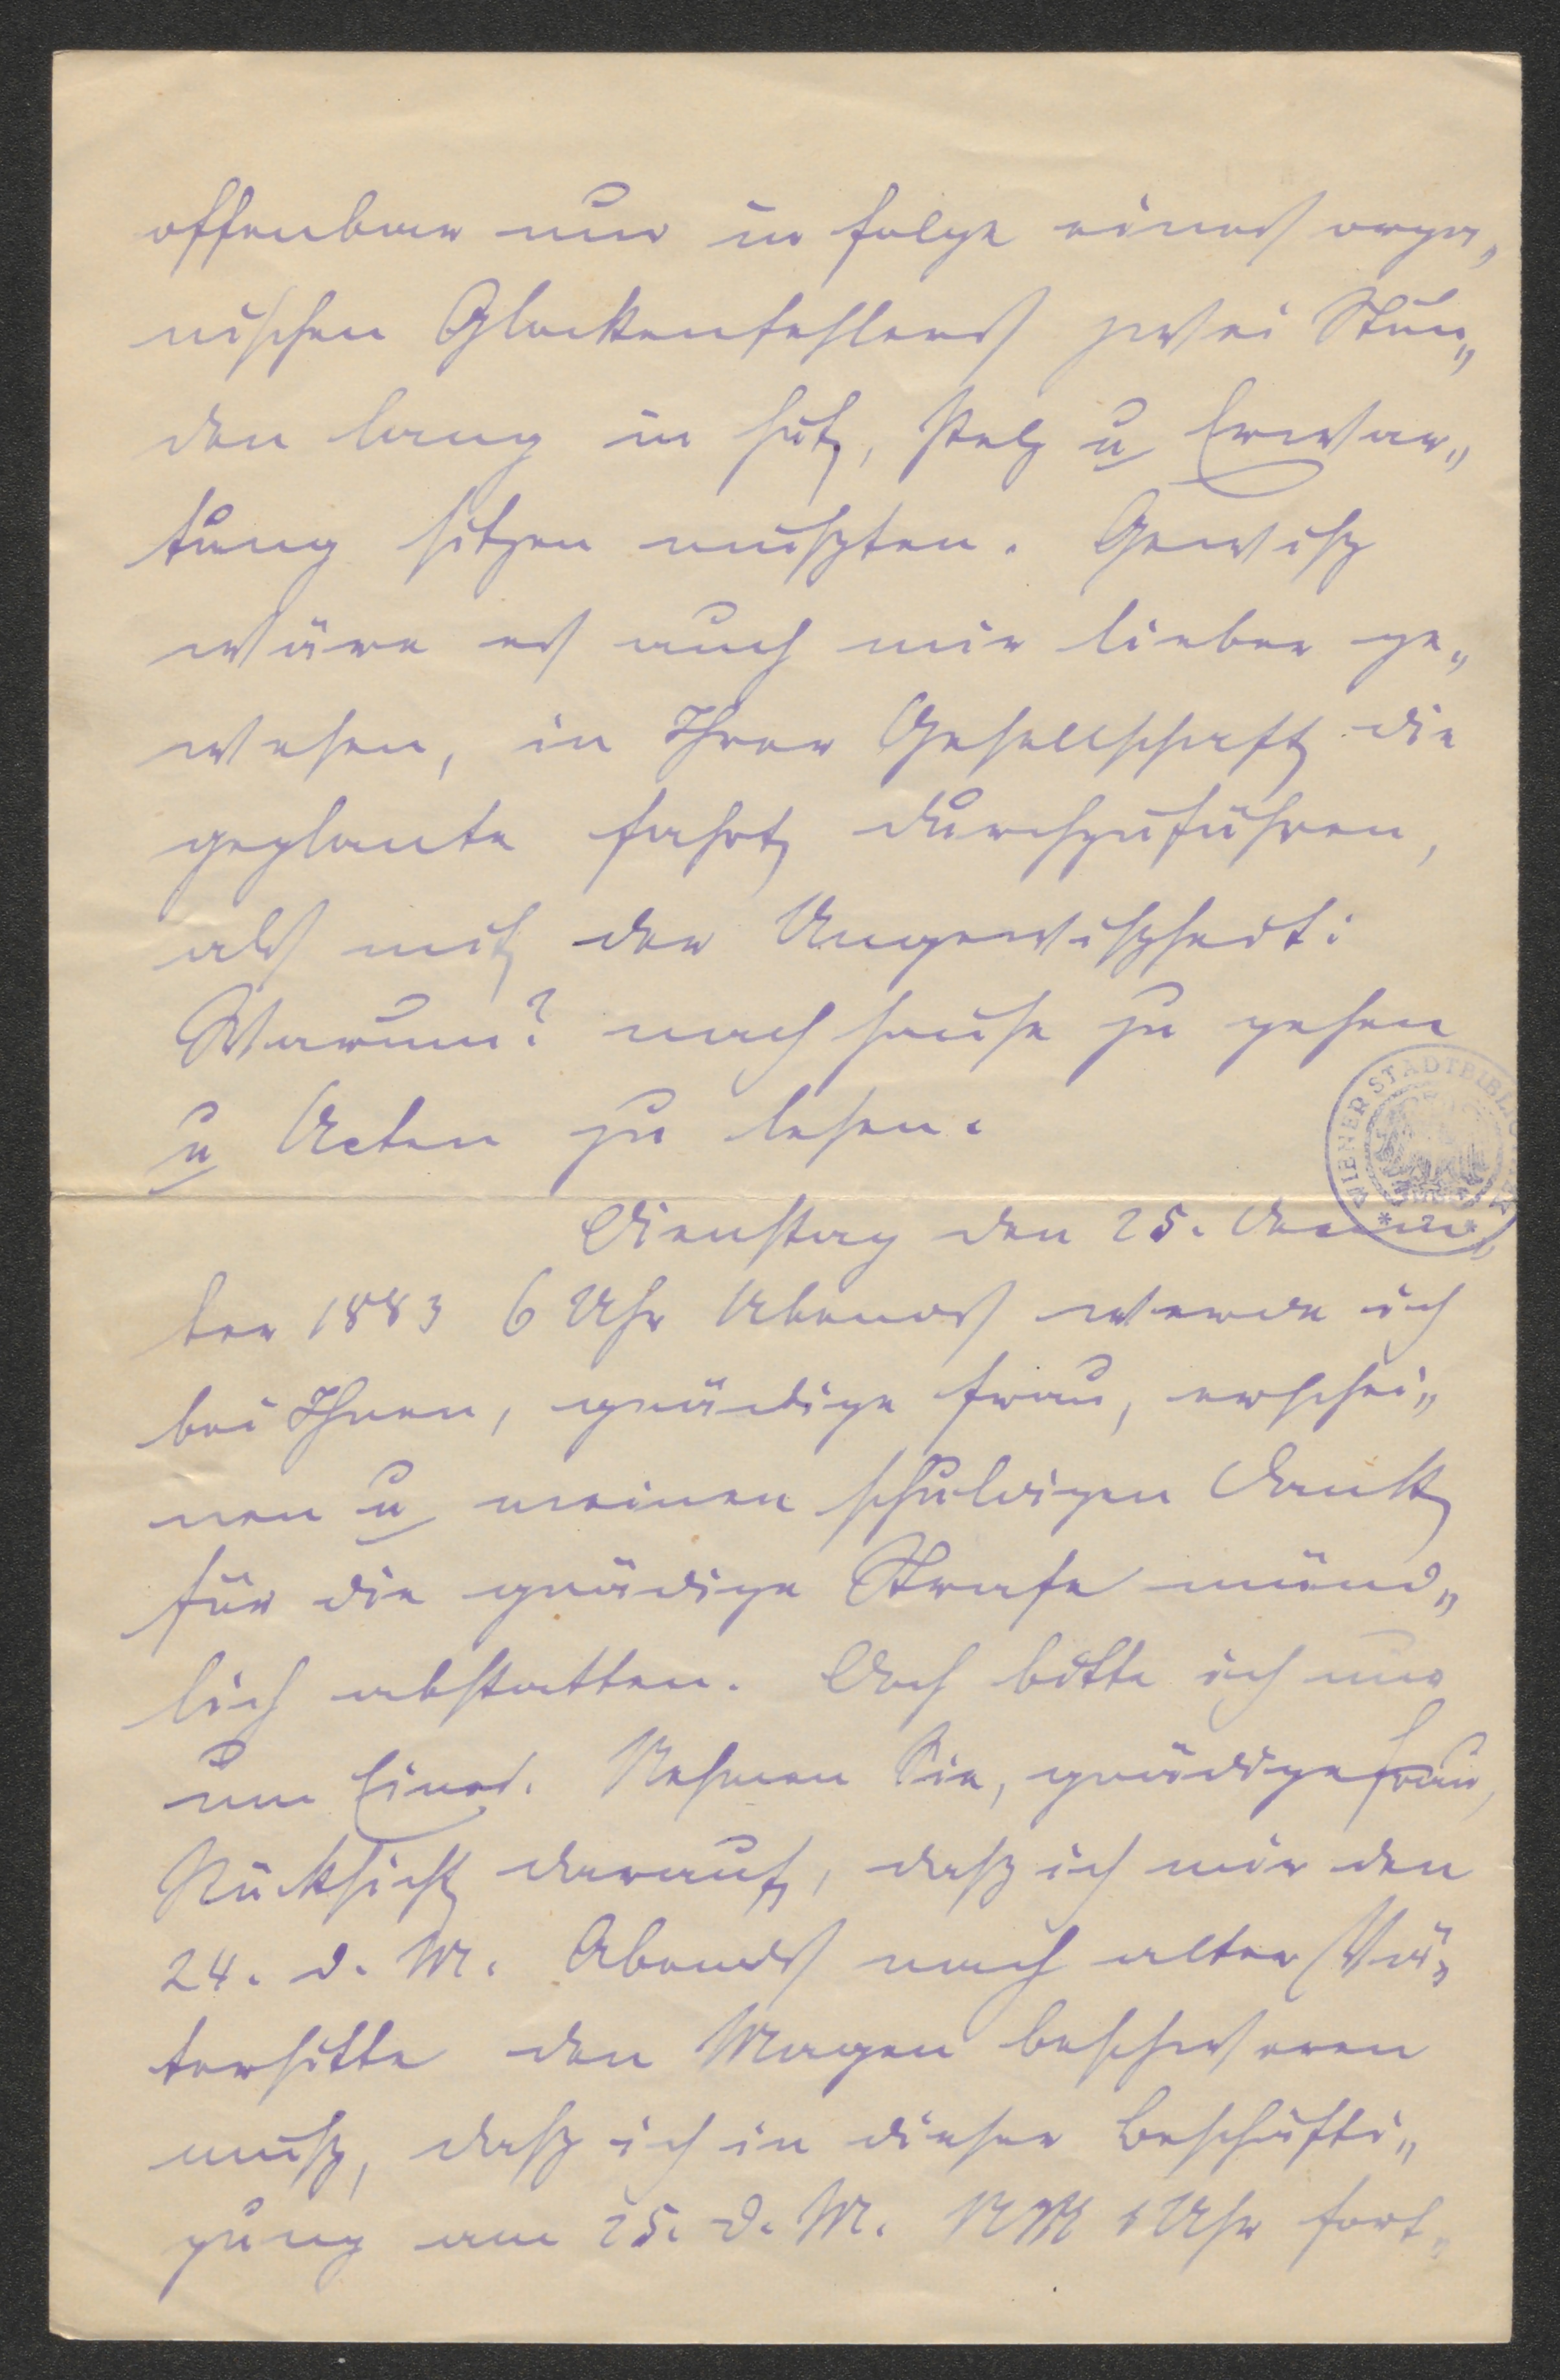 offenbar nur in folge eines orga„
nischen Glockenfehlers zwei Stun„
den lang in Hut, Pelz u Erwar„
tung sitzen muszten. Gewisz
wäre es auch mir lieber ge„
wesen, in Ihrer Gesellschaft die
geplante Fahrt durchzuführen,
als mit der Ungewiszheit:
Warum? nach Hause zu gehen
u Acten zu lesen.
Dienstag den 25. Decem„
ber 1883 6 Uhr Abends werde ich
bei Ihnen, gnädige Frau, erschei„
nen u meinen schuldigen Dank
für die gnädige Strafe münd„
lich abstatten. Doch bitte ich nur
um Eines. Nehmen Sie, gnädige Frau,
Rücksicht darauf, dasz ich mir den
24. d. M. Abends nach alter Vä„
tersitte den Magen beschweren
musz, dasz ich in dieser Beschäfti„
gung am 25. d. M. NM 1 Uhr fort„
WIENER STADTBIBLIOTHEK